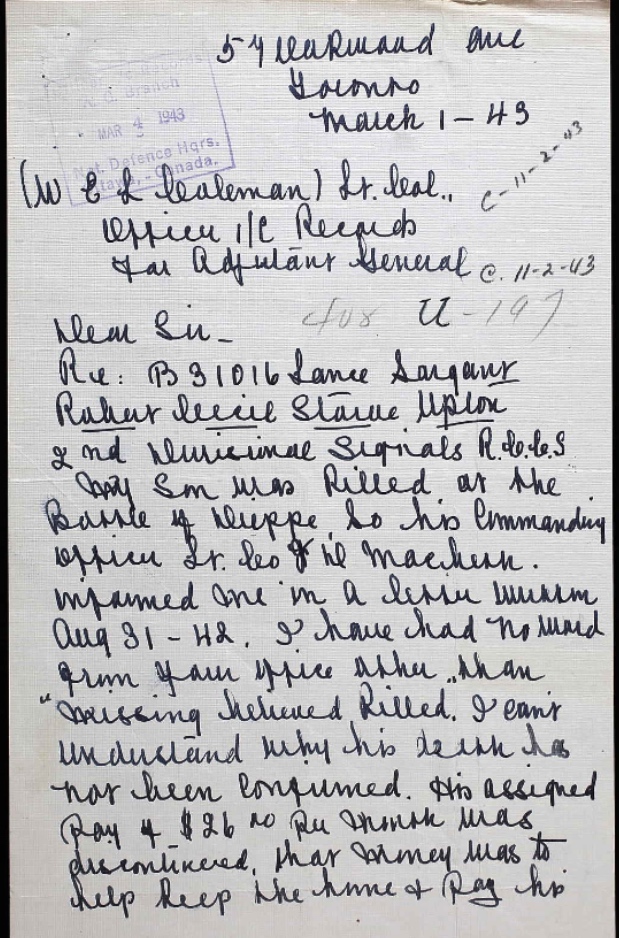 57 Oakwood Ave
Toronto
March 1-43
Records
Branch
MAR 4 1943
Nat. Defence Hqrs.
Ottawa, - Canada.
C-11-2-43
(W E L Coleman) Lt. Col.,
Officer i/c Records
for Adjutant General
C. 11-2-43
U-197
Dear Sir -
Re: B31016 Lance Sargant
Robert Cecil Stowe Upton
2nd Divisional Signals R.C.C.S
My Son was Killed at the
Battle of Dieppe, So his Commanding
Officer Lt. Co
informed me in a letter written
Aug 31-42. I have had no word
from your office other than
"missing believed Killed. I can't
understand why his death has
not been Confirmed. His assigned
Pay of $26 00 Per month was
discontinued, that money was to
help keep the home & Pay his